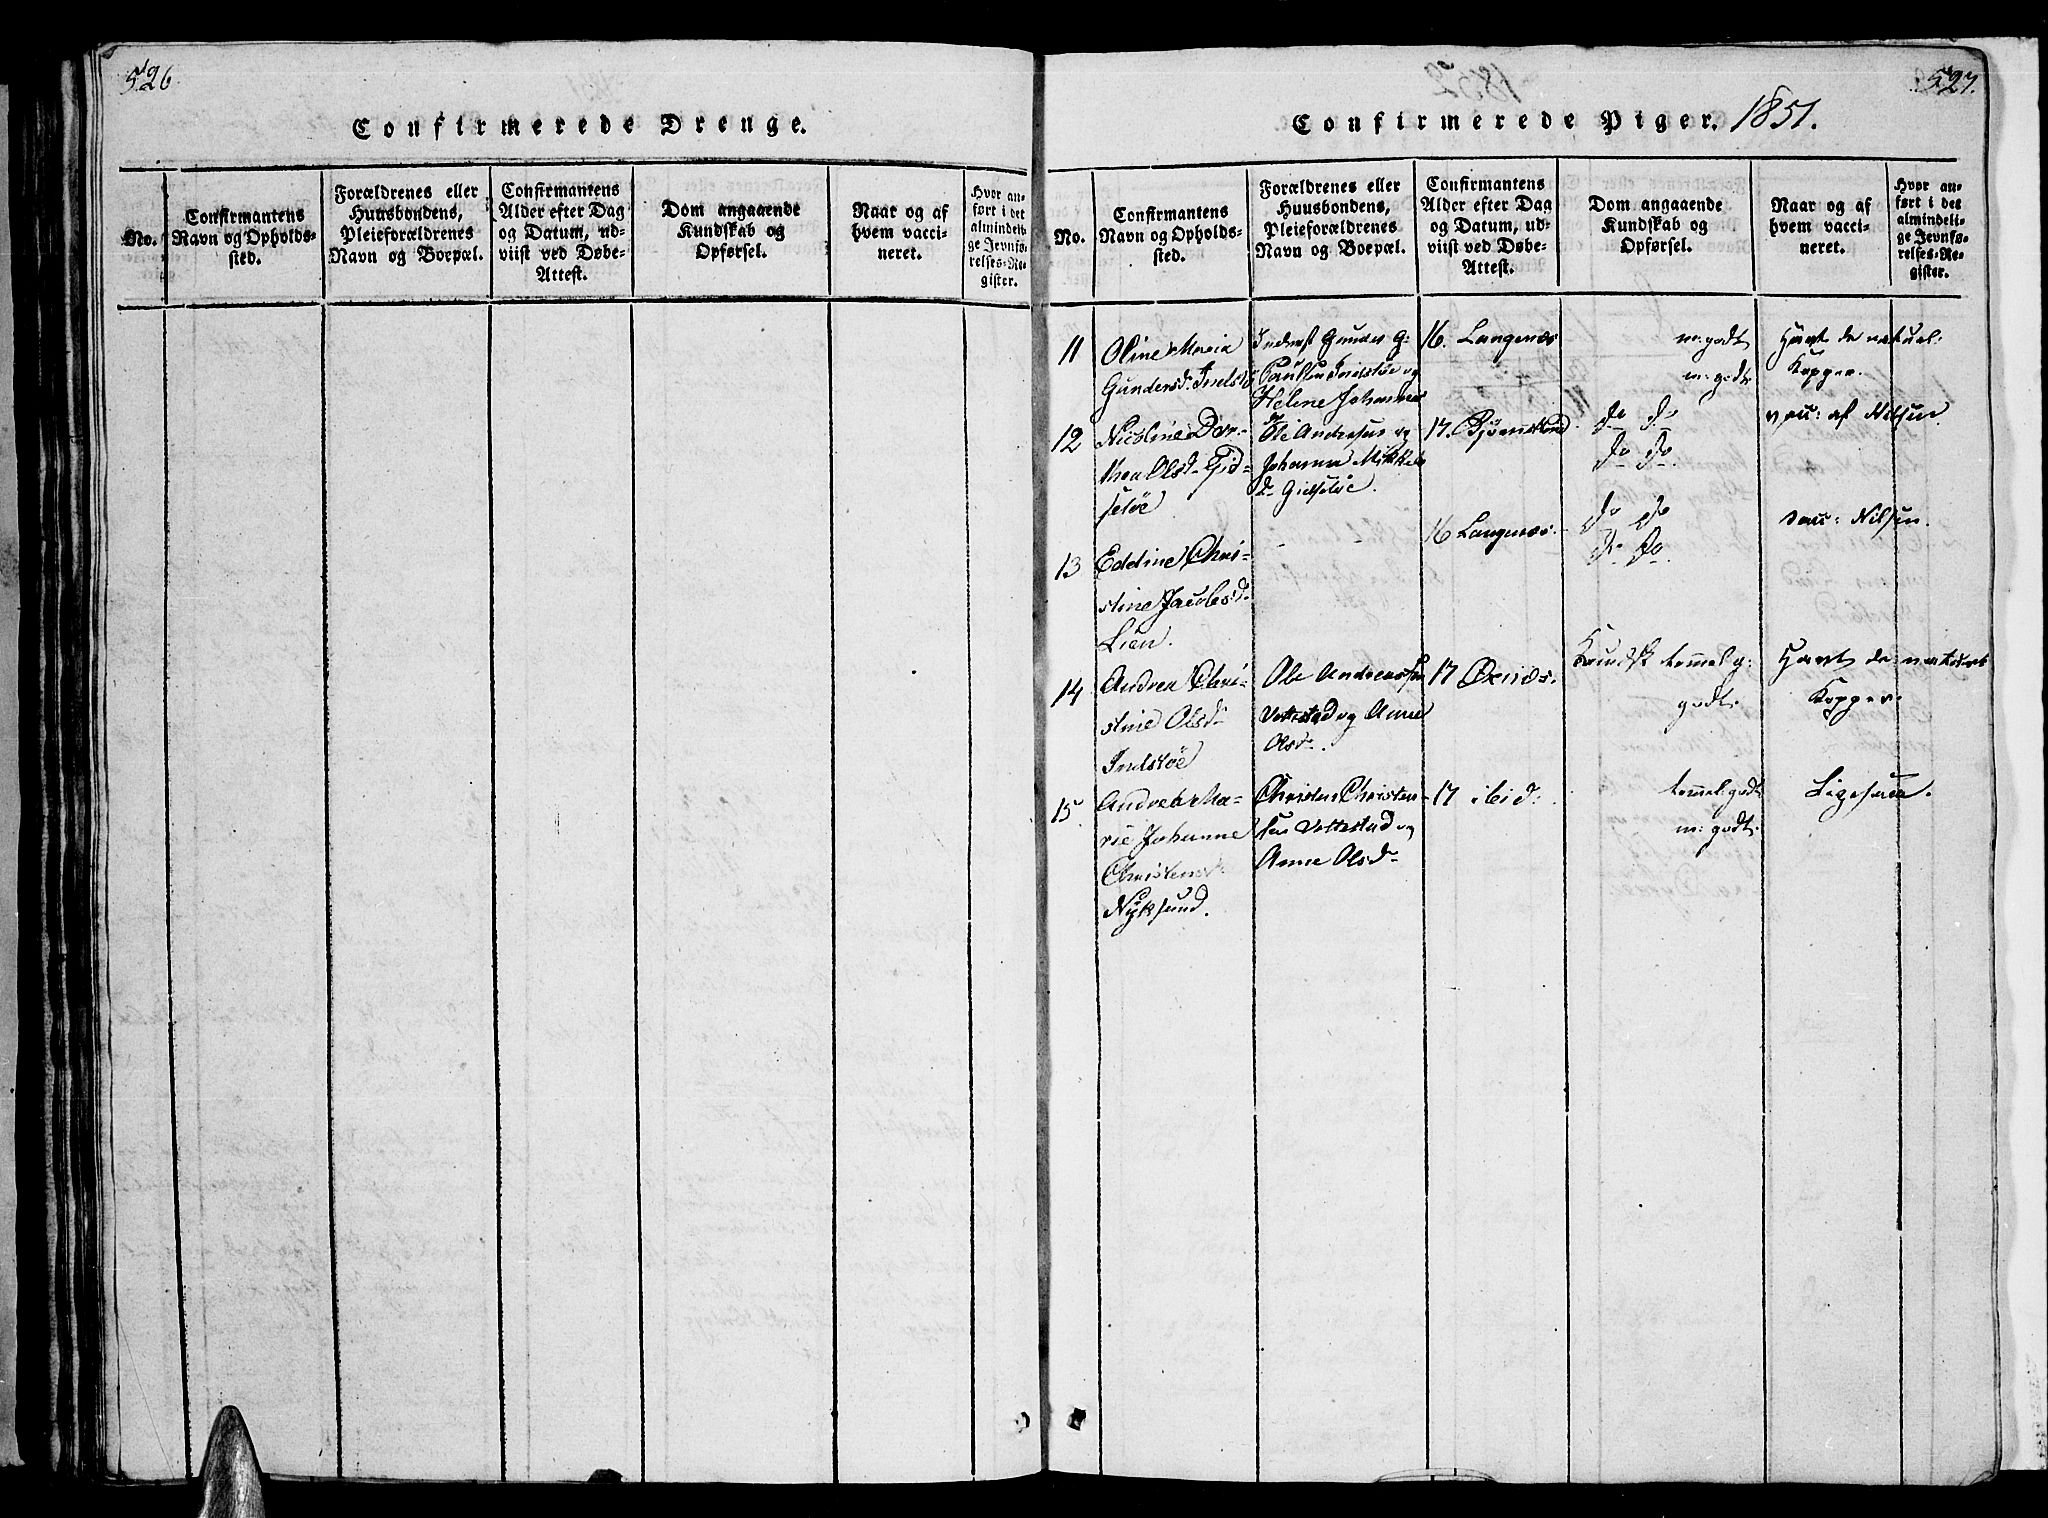 526
Confirmerede Drenge.
No.
Confirmantens
Navn og Opholds-
sted.
Forældrenes eller
Huusbondens,
Pleieforældrenes
Navn og Boepæl.
Confirmantens
Alder efter Dag
og Datum, ud-
viist ved Døbe-
Attest.
Dom angaaende
Kundskab og
Opførsel.
Naar og af
hvem vacci-
neret.
Hvor an-
ført i det
almindeli-
ge Jevnfø-
relses-Re-
gister.
527.
Confirmerede Piger. 1851.
No.
Confirmantens
Navn og Opholds-
sted.
Forældrenes eller
Huusbondens,
Pleieforældrenes
Navn og Boepæl.
Confirmantens
Alder efter Dag
og Datum, ud-
viist ved Døbe-
Attest.
Dom angaaende
Kundskab og
Opførsel.
Naar og af
hvem vacci-
neret.
Hvor an-
ført i det
almindeli-
ge Jevnfø-
relses-Re-
gister.
11
Oline Maria
Gundersd. Indstø
Inderst Gunder G:
Paulsen Indstøe og
Helene Johannes
d
16. Langenæs
m: godt
m: godt
Havt de naturl:
Kopper.
12
Nicoline Dor-
thea Olsd. Gid-
seløe
Ole Andersen og
Johanna Mikkels
d. Gidseløe.
17. Bjørnskind
do do
do do
vac: af Nilsen.
13
Eddine Chri-
stine Jacobsd.
Lien.
16 Langenæs.
do do
do do.
vac: Nilsen.
14
Andrea Chri-
stine Olsd.
Indstøe
Ole Andreassen
Vottestad og Anne
Olsd.
17 Øxnæs.
Kundsk temmel g:
godt.
Havt de naturl
Kopper.
15.
Andrea Ma-
rie Johanne
Christensd.
Nyksund.
Christen Christen-
sen Vottestad og
Anne Olsd.
17 ibid:
temmel: godt
m: godt.
Ligesaa.